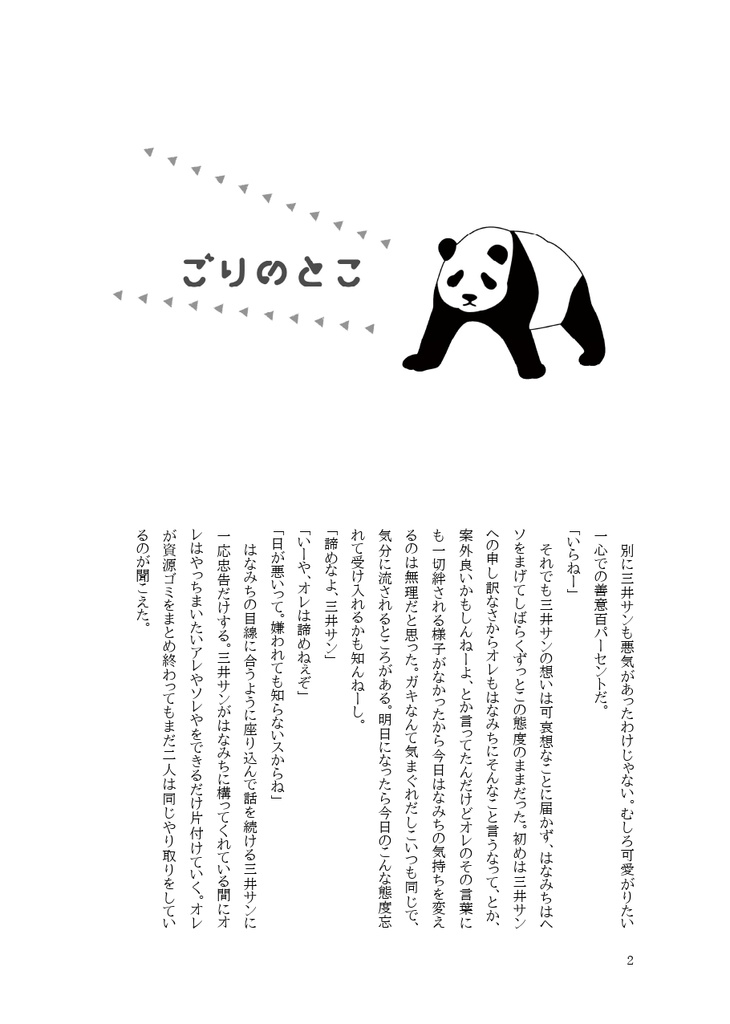 ごりのとこ
別に三井サンも悪気があったわけじゃない。むしろ可愛がりたい
一心での善意百パーセントだ。
「いらねー」
それでも三井サンの想いは可哀想なことに届かず、はなみちはヘ
ソをまげてしばらくずっとこの態度のままだった。初めは三井サン
への申し訳なさからオレもはなみちにそんなこと言うなって、とか、
案外良いかもしんねーよ、とか言ってたんだけどオレのその言葉に
も一切絆される様子がなかったから今日はなみちの気持ちを変え
るのは無理だと思った。ガキなんて気まぐれだしこいつも同じで、
気分に流されるところがある。明日になったら今日のこんな態度忘
れて受け入れるかも知んねーし。
「諦めなよ、三井サン」
「いーや、オレは諦めねえぞ」
「日が悪いって。嫌われても知らないスからね」
はなみちの目線に合うように座り込んで話を続ける三井サンに
一応忠告だけする。三井サンがはなみちに構ってくれている間にオ
レはやっちまいたいアレやソレやをできるだけ片付けていく。オレ
が資源ゴミをまとめ終わってもまだ二人は同じやり取りをしてい
るのが聞こえた。
2